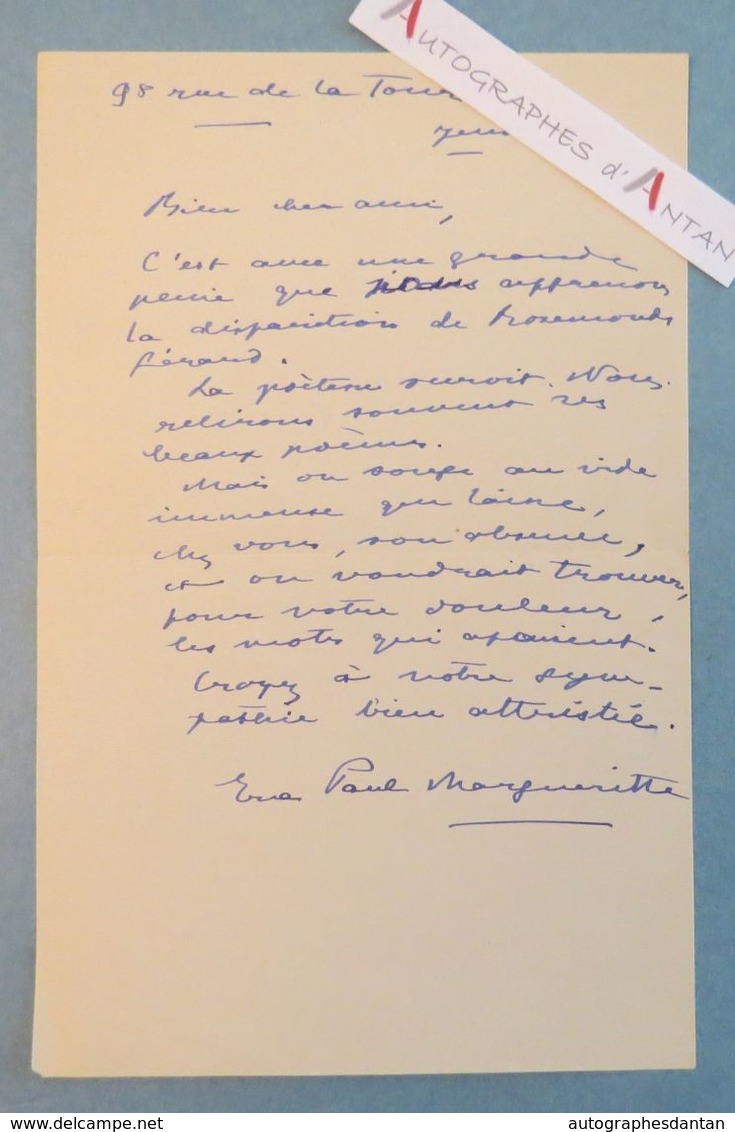 98 rue de la Tour
AUTOGRAPHES d'ANTAN
Bien cher ami,
C'est avec une grande
peine que nous apprenons
la disparition de Rosemonde
Gérard.
La poétesse survit. Nous
relirons souvent ses
beaux poèmes.
Mais on songe au vide
immense que laisse,
chez vous, son absence,
et on voudrait trouver,
pour votre douleur,
les mots qui apaisent.
Croyez à notre sym-
pathie bien attristée.
Eva Paul Margueritte
www.delcampe.net
autographesdantan